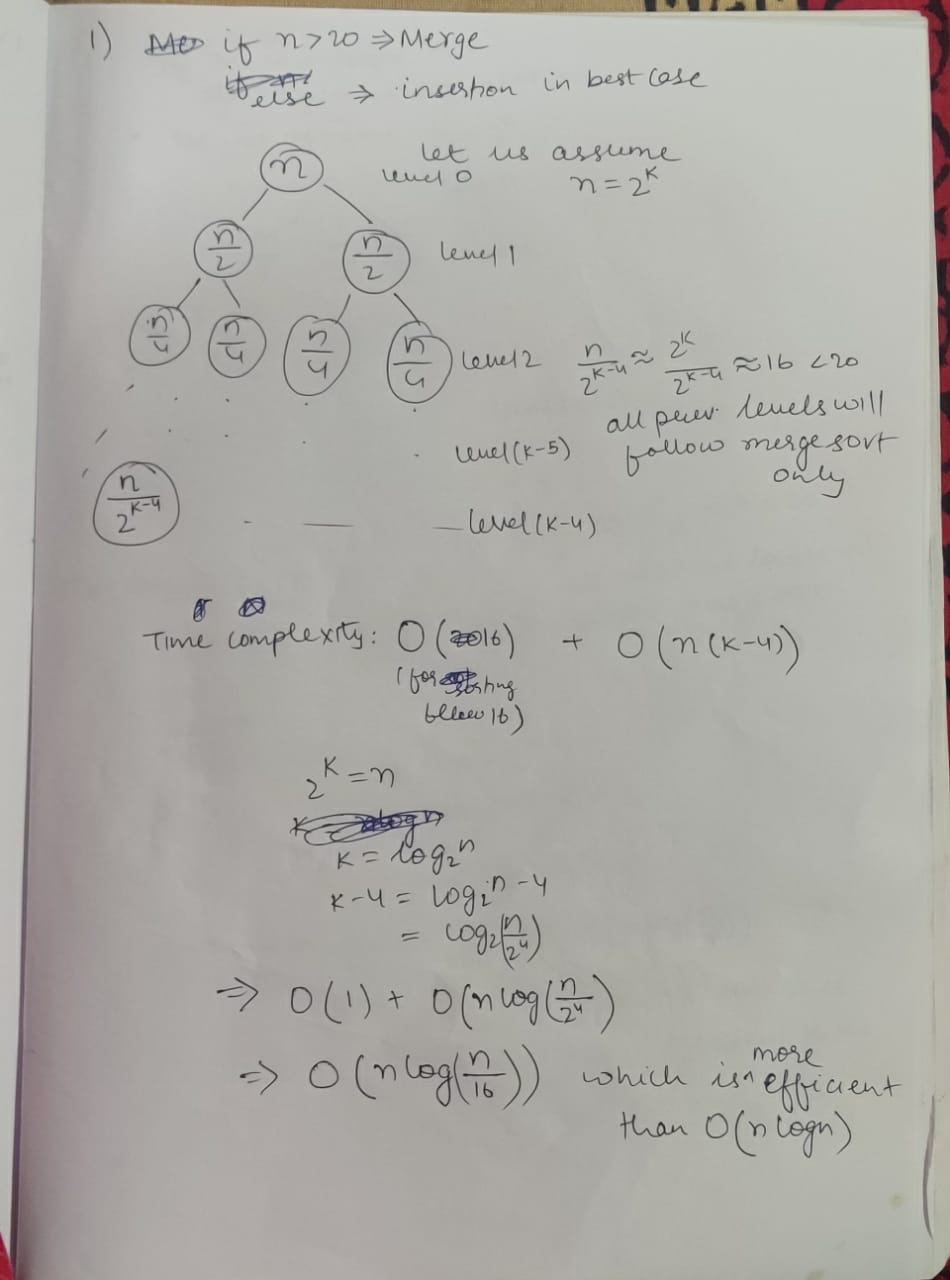 1) if n>20 ⇒ Merge
else ⇒ insertion in best case
n
level 0
let us assume
n = 2^K
n/2 n/2 level 1
n/4 n/4 n/4 n/4 level 2
n/2^(K-4) ≈ 2^K/2^(K-4) ≈ 16 < 20
all prev. levels will
follow merge sort
only
level (K-5)
n/2^(K-4) level (K-4)
Time complexity: O(16) + O(n(K-4))
(for sorting
below 16)
2^K = n
K = log₂n
K-4 = log₂n - 4
= log₂(n/2^4)
⇒ O(1) + O(n log(n/2^4)
⇒ O(n log(n/16)) which is more efficient
than O(n logn)